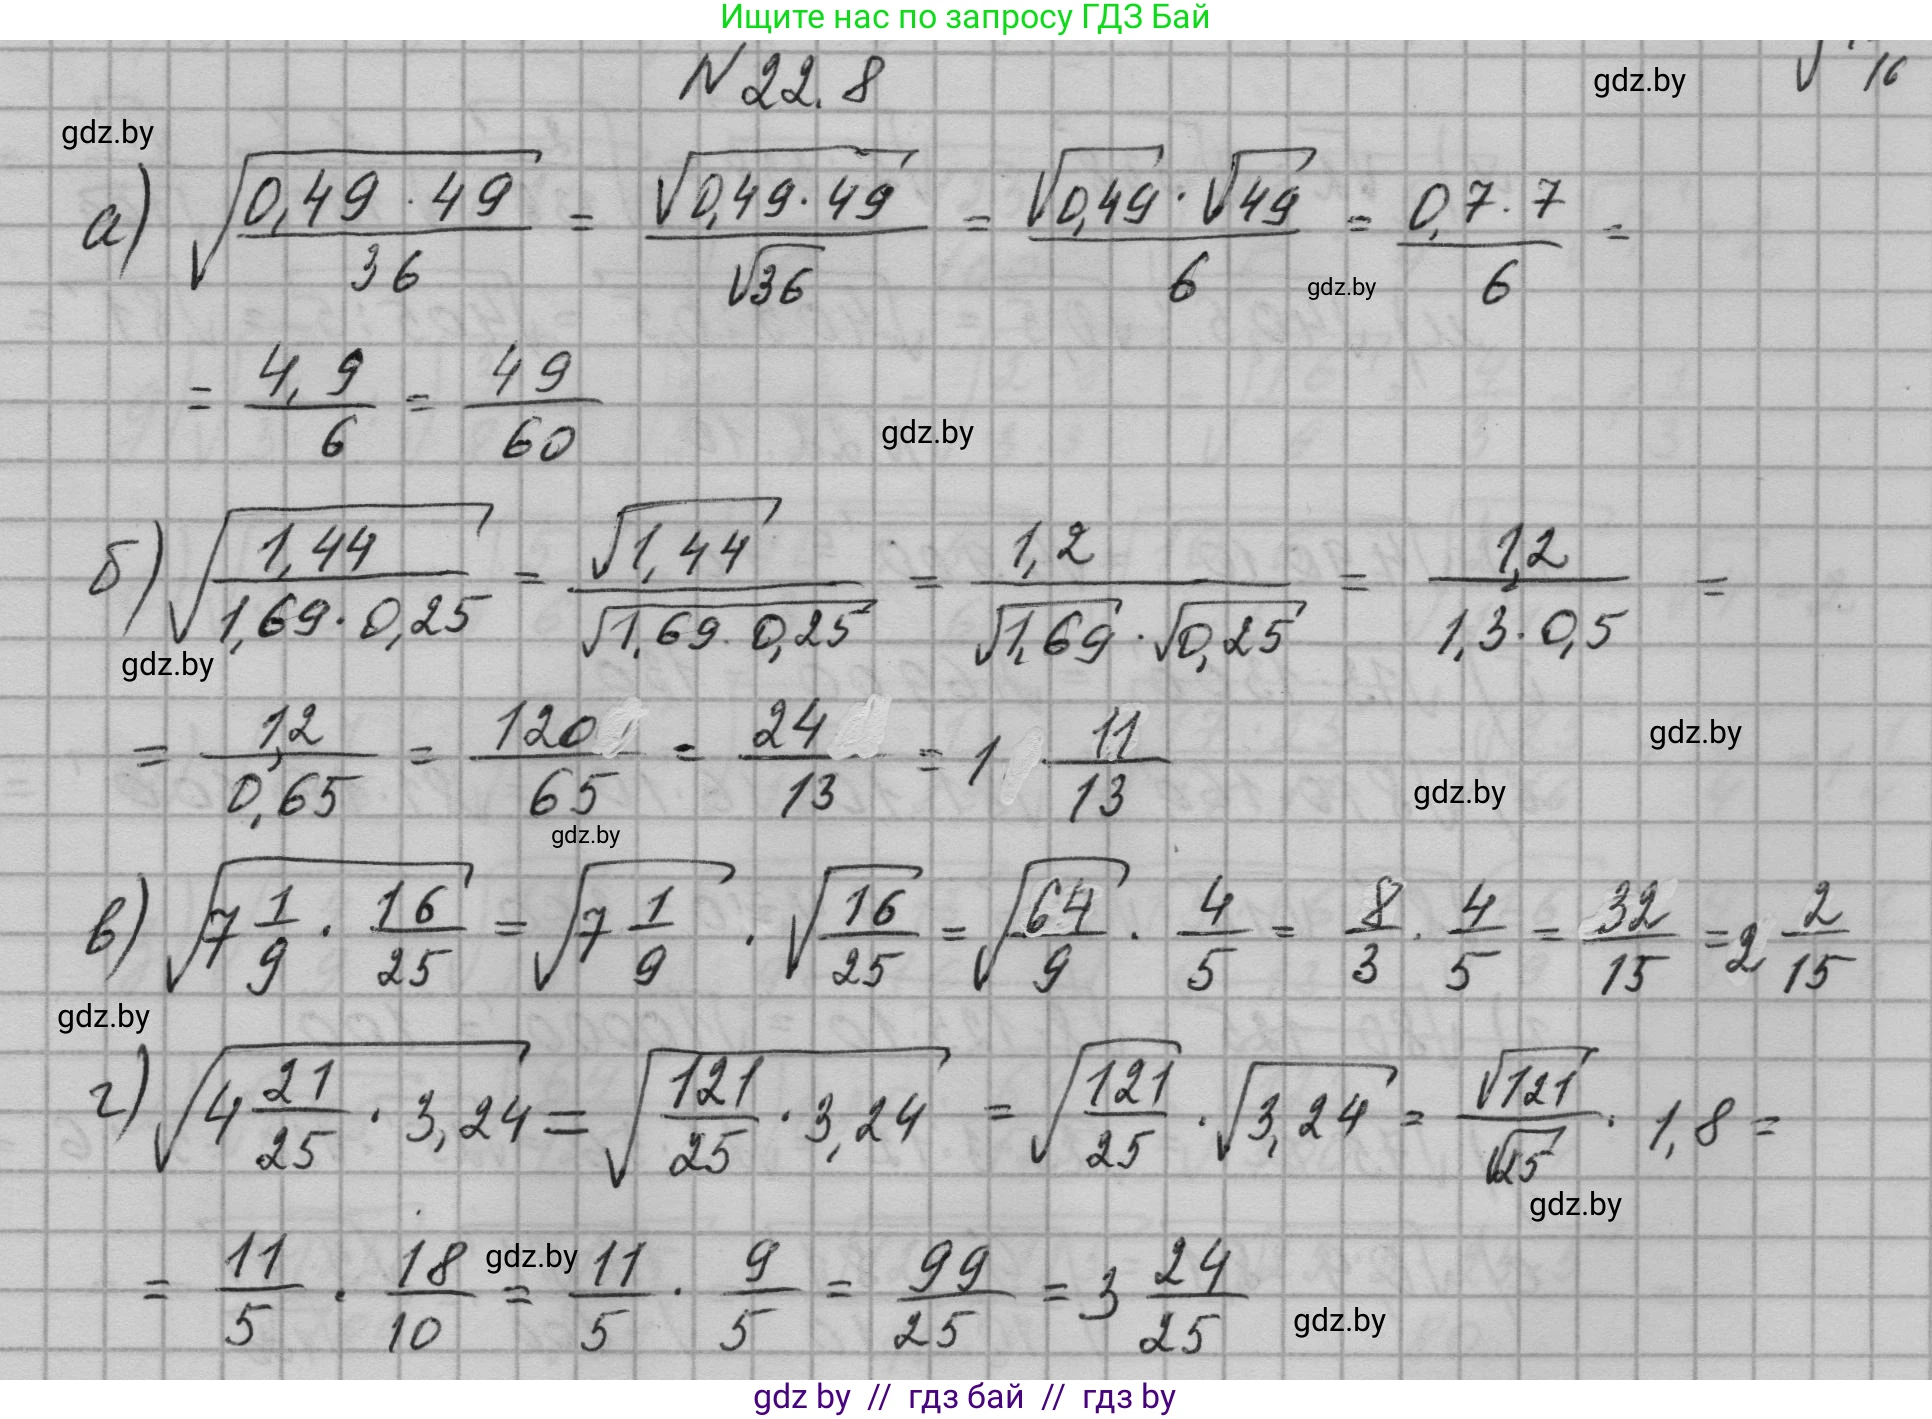 Ищите нас по запросу ГДЗ Бай
N 22.8
gdz.by
√ 16
gdz.by
а) √(0,49 · 49 / 36) = √(0,49 · 49) / √36 = √0,49 · √49 / 6 = 0,7 · 7 / 6 =
gdz.by
= 4,9 / 6 = 49 / 60
gdz.by
б) √(1,44 / 1,69 · 0,25) = √1,44 / √(1,69 · 0,25) = 1,2 / √1,69 · √0,25 = 1,2 / 1,3 · 0,5 =
gdz.by
= 1,2 / 0,65 = 120 / 65 = 24 / 13 = 1 11/13
gdz.by
gdz.by
gdz.by
в) √(7 1/9 · 16/25) = √(7 1/9) · √(16/25) = √(64/9) · 4/5 = 8/3 · 4/5 = 32/15 = 2 2/15
gdz.by
г) √(4 21/25 · 3,24) = √(121/25 · 3,24) = √(121/25) · √3,24 = √121 / √25 · 1,8 =
gdz.by
= 11/5 · 18/10 = 11/5 · 9/5 = 99/25 = 3 24/25
gdz.by
gdz.by
gdz by // гдз бай // гдз by